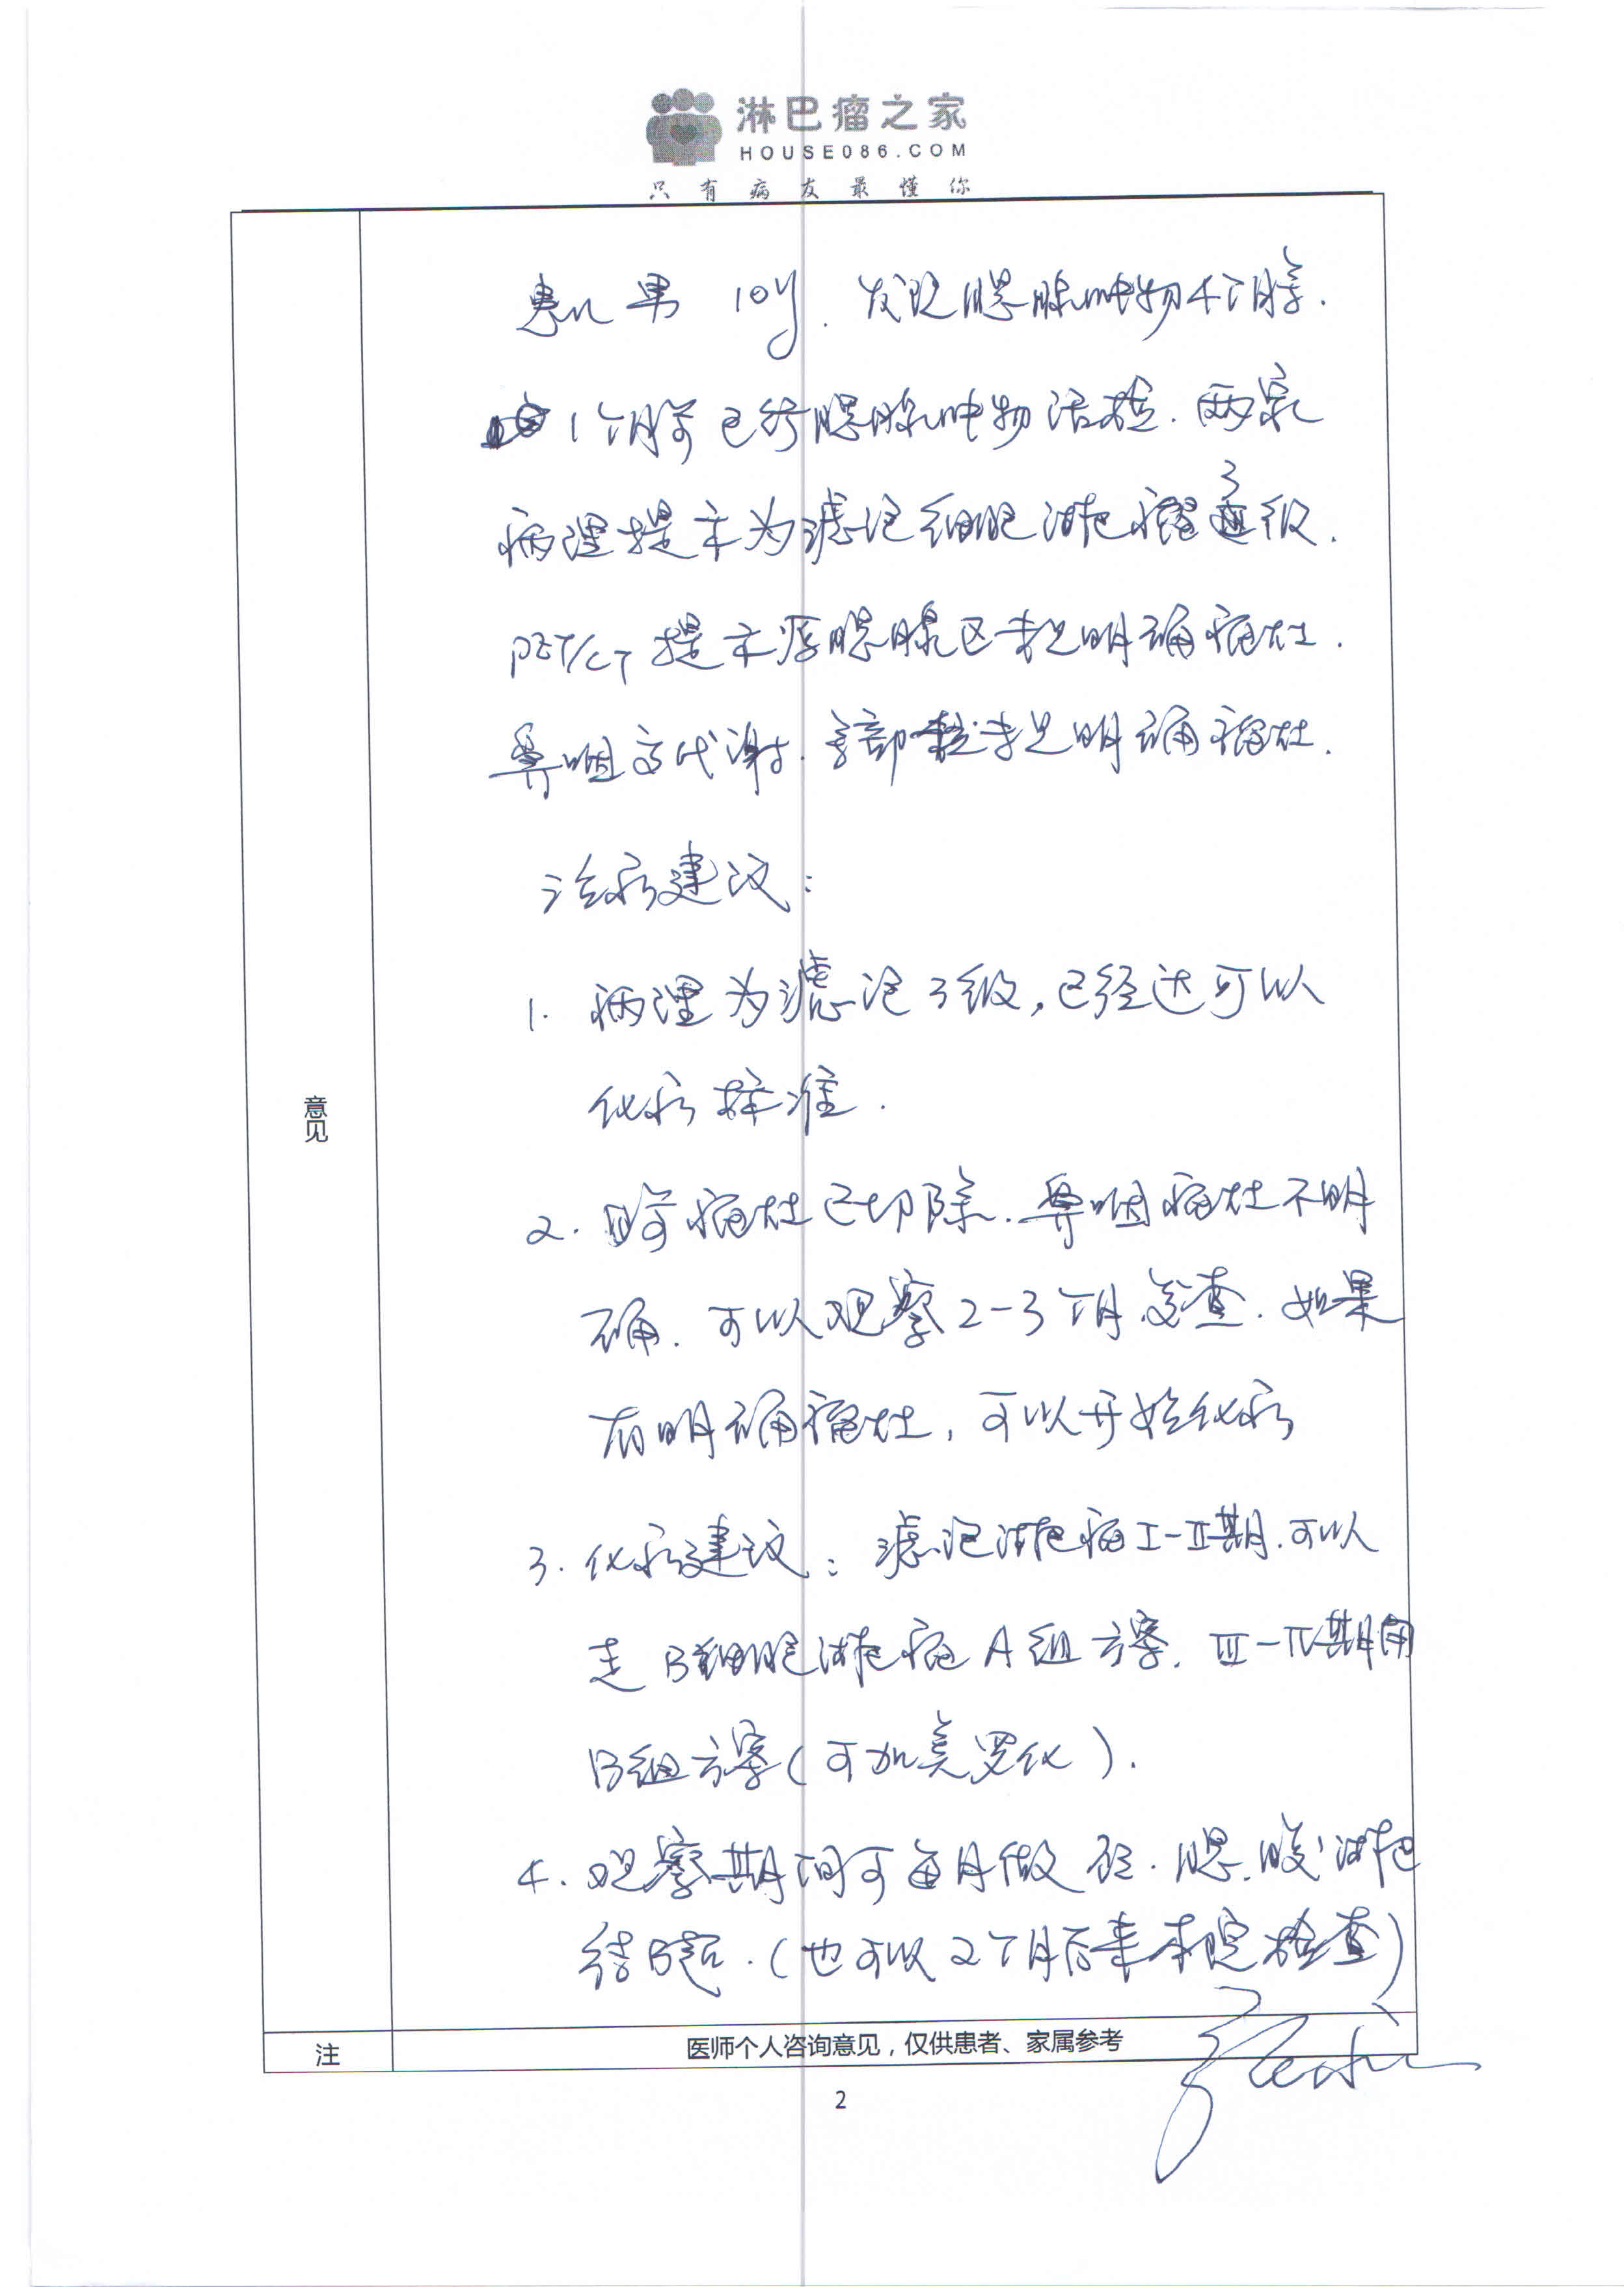 淋巴瘤之家
HOUSE086.COM
只有病友最懂你
患儿 男 10y. 发现腮腺肿物4个月余.
1个月前已行腮腺肿物活检. 两家
病理提示为滤泡细胞淋巴瘤3级.
PET/CT提示原腮腺区未见明确瘤灶.
鼻咽高代谢. 余部位未见明确瘤灶.
治疗建议:
1. 病理为滤泡3级, 已经达可以
化疗标准.
2. 目前瘤灶已切除. 鼻咽瘤灶不明
确. 可以观察2-3个月复查. 如果
有明确瘤灶, 可以开始化疗
3. 化疗建议: 滤泡淋巴瘤I-II期. 可以
走B细胞淋巴瘤A组方案. III-IV期用
B组方案(可加美罗华).
4. 观察期间可每月做颈. 腮. 腹淋巴
结B超. (也可以2个月后来本院检查)
意见
注
医师个人咨询意见，仅供患者、家属参考
2